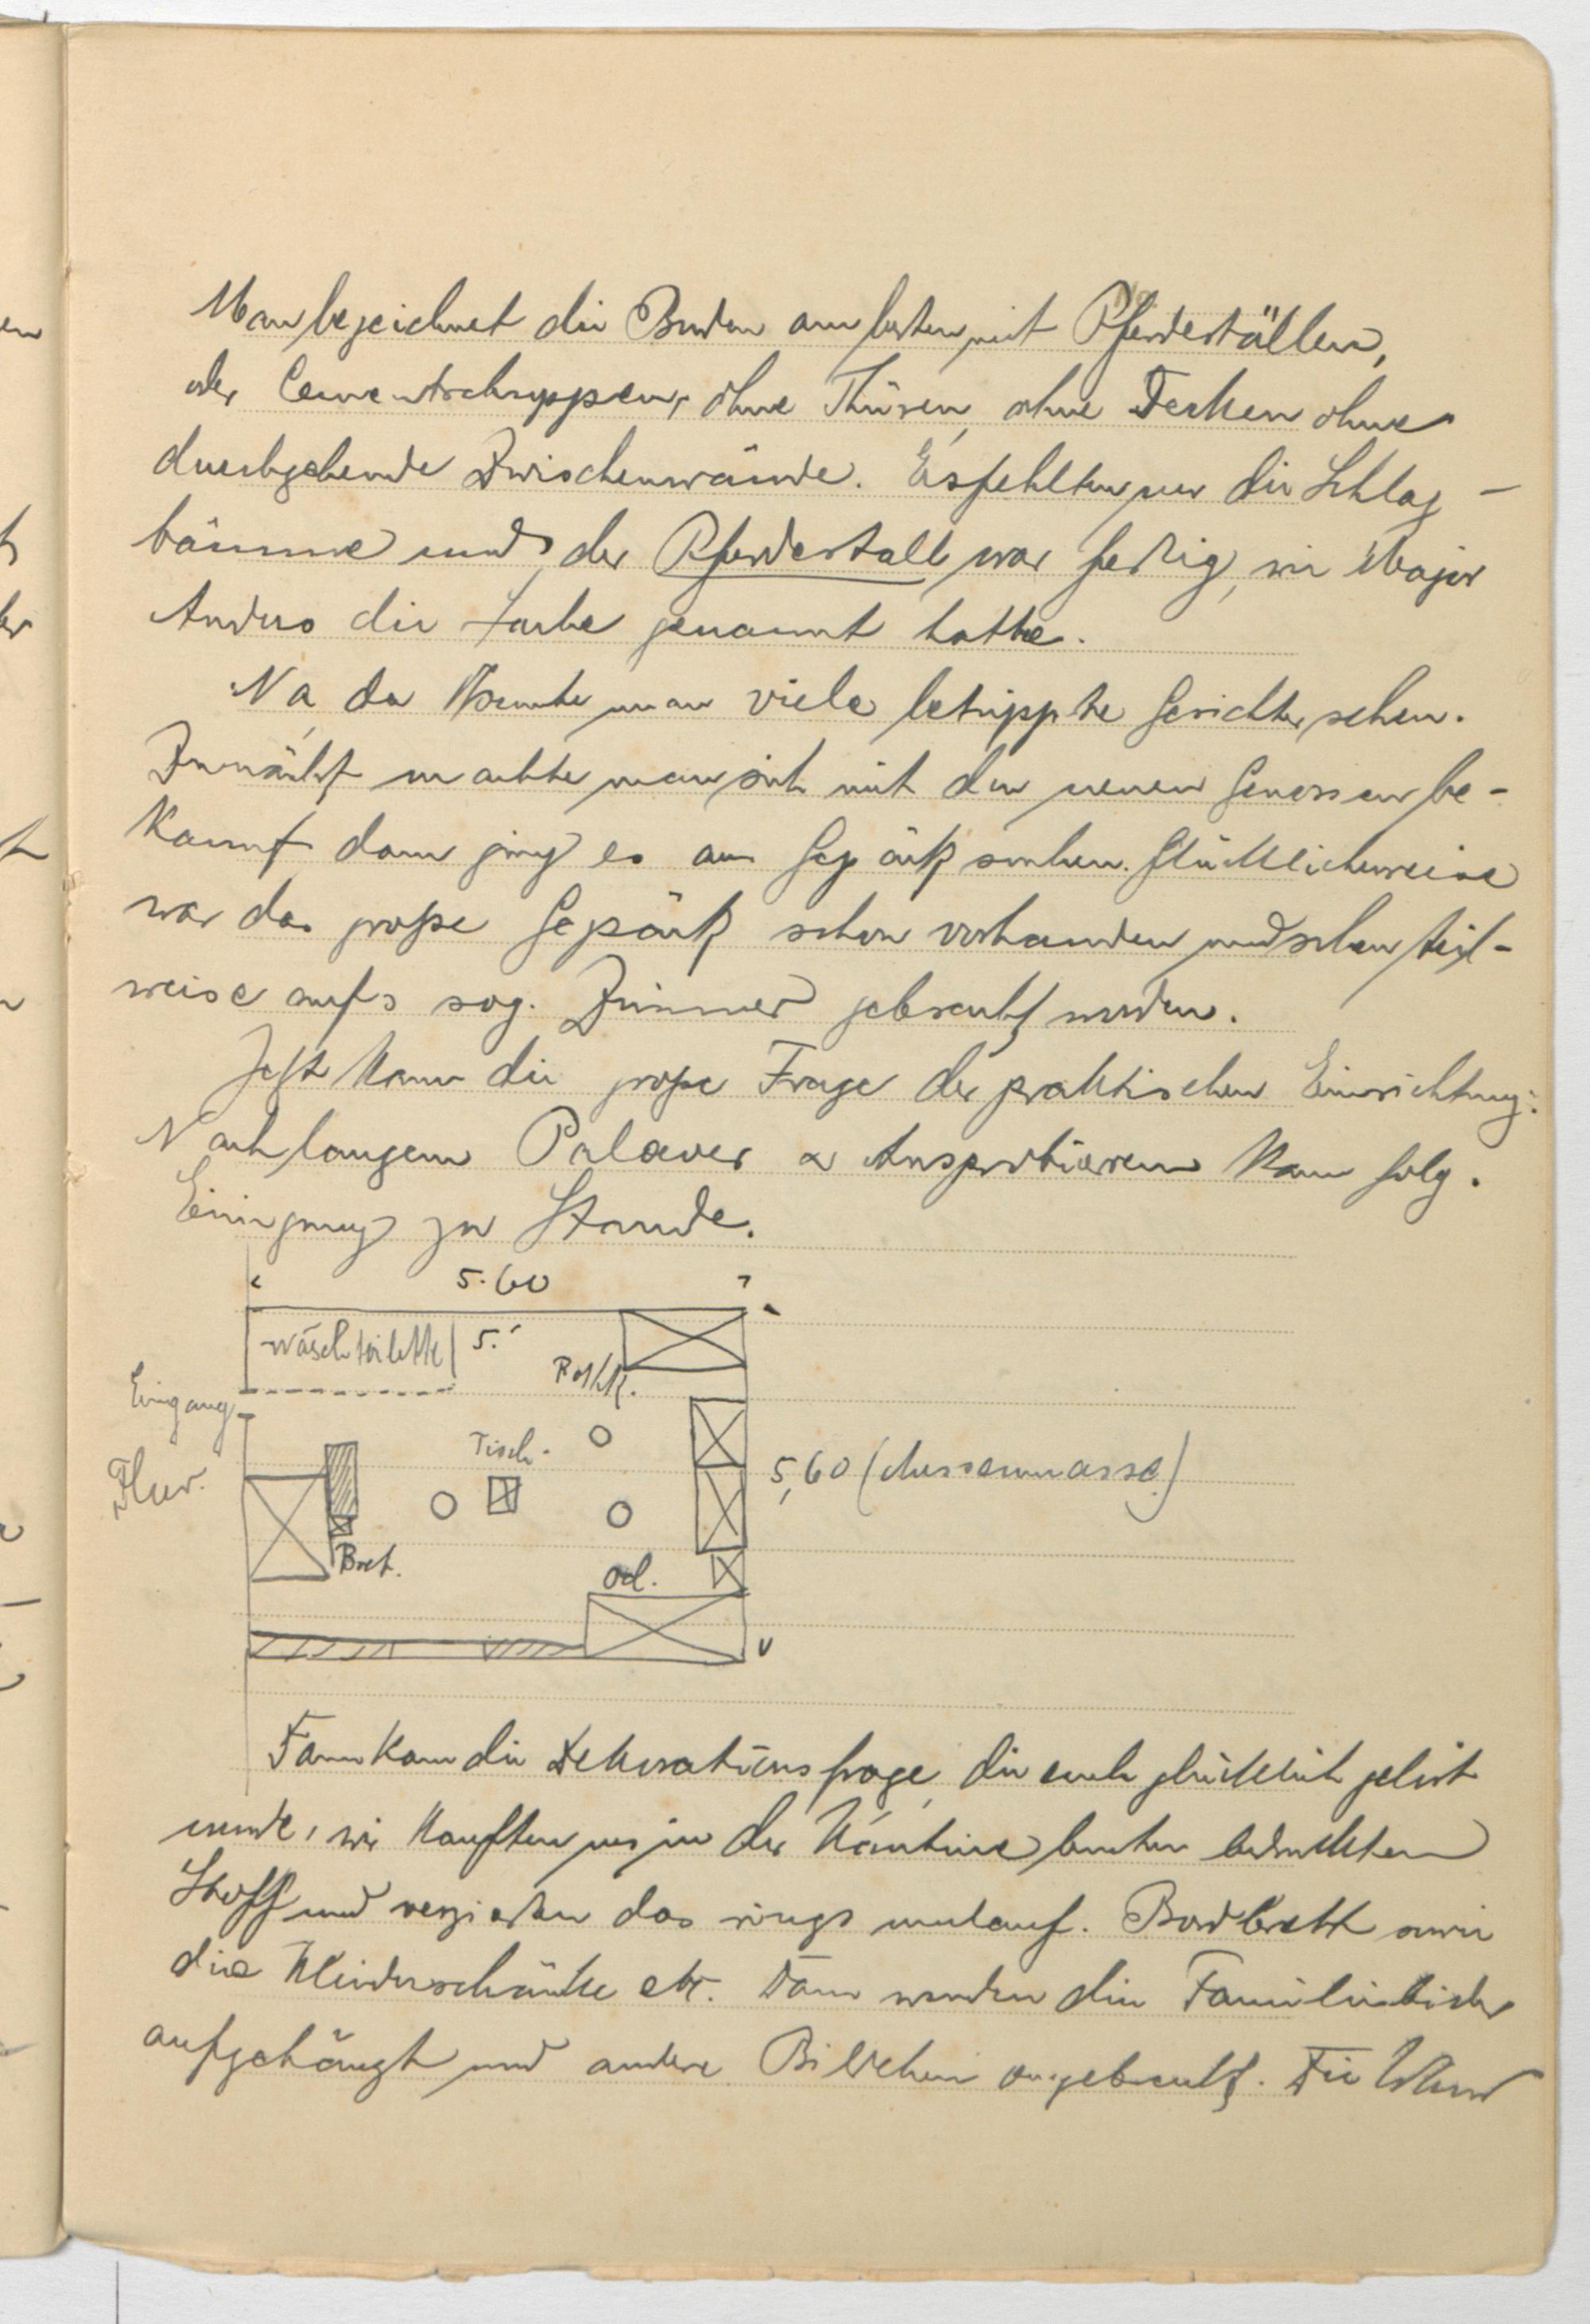 Man bezeichnet die Buden am besten mit Pferdeställen,
oder Cementschuppen, ohne Thüren, ohne Decken ohne
durchgehende Zwischenwände. Es fehlten nur die Schlag-
bäume und der Pferdestall war fertig, wie Major
Anders die Sache genannt hatte.
Na da konnte man viele betrippte Gesichter sehen.
Zunächst machte man sich mit den neuen Genossen be-
kannt dann ging es ans Gepäck suchen. Glücklicherweise
war das große Gepäck schon vorhanden und schon teil-
weise aufs sog. Zimmer gebracht worden.
Jetzt kam die große Frage der praktischen Einrichtung:
Nach langem Palaver & Ausprobieren kam folg.
Einigung zu Stande.
5.60
Wäschtoilette 5.
Eingang
Tisch.
5,60 (Aussenmasse)
Flur.
Bret.
Od.
Dann kam die Dekorationsfrage, die auch glücklich gelöst
wurde, wir kauften uns in der Kantine bunten bedruckten
Stoff und verzierten das rings umlauf. Bordbrett sowie
die Kleiderschänke etc. Dann wurden die Familienbilder
aufgehängt und andere Bildchen angebracht. Die